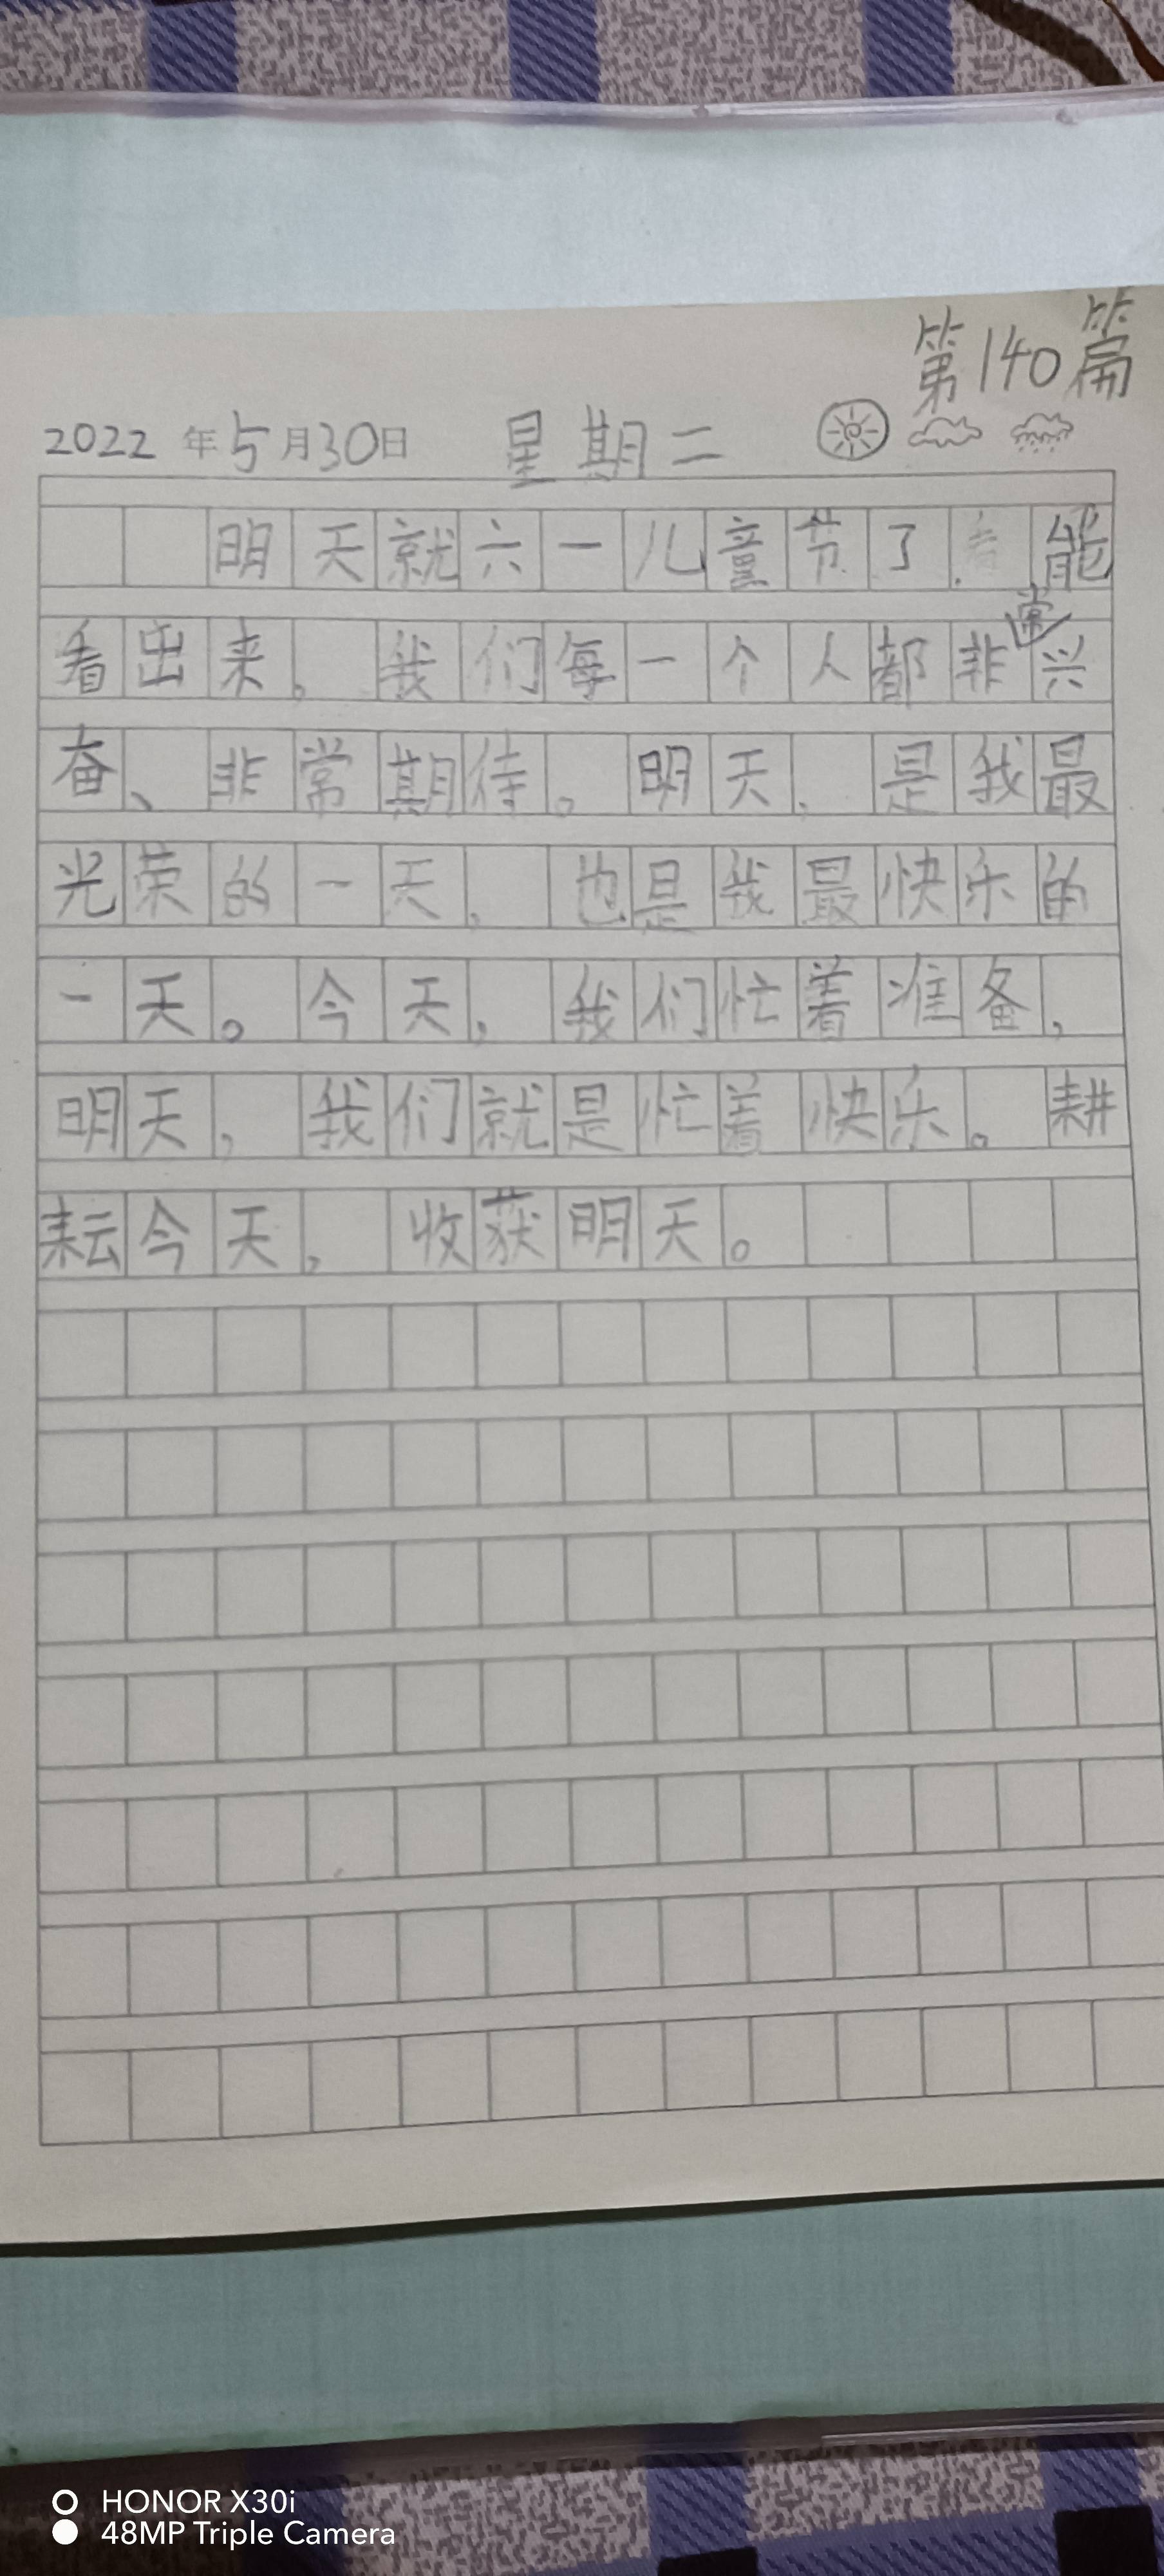 第140篇
2022年5月30日 星期二
明天就六一儿童节了,能
看出来。我们每一个人都非常兴
奋、非常期待。明天,是我最
光荣的一天,也是我最快乐的
一天。今天,我们忙着准备,
明天,我们就是忙着快乐。耕
耘今天,收获明天。
HONOR X30i
48MP Triple Camera